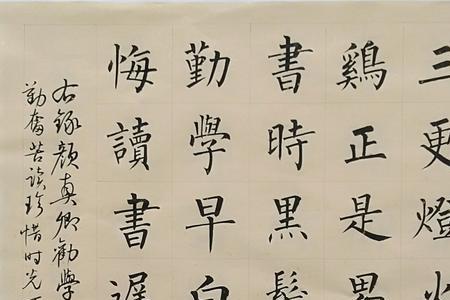 三更燈火
鷄正是男
書時黑髮
勤學早白
悔讀書遲
右録顏真卿勸學
勤奮苦读珍惜时光